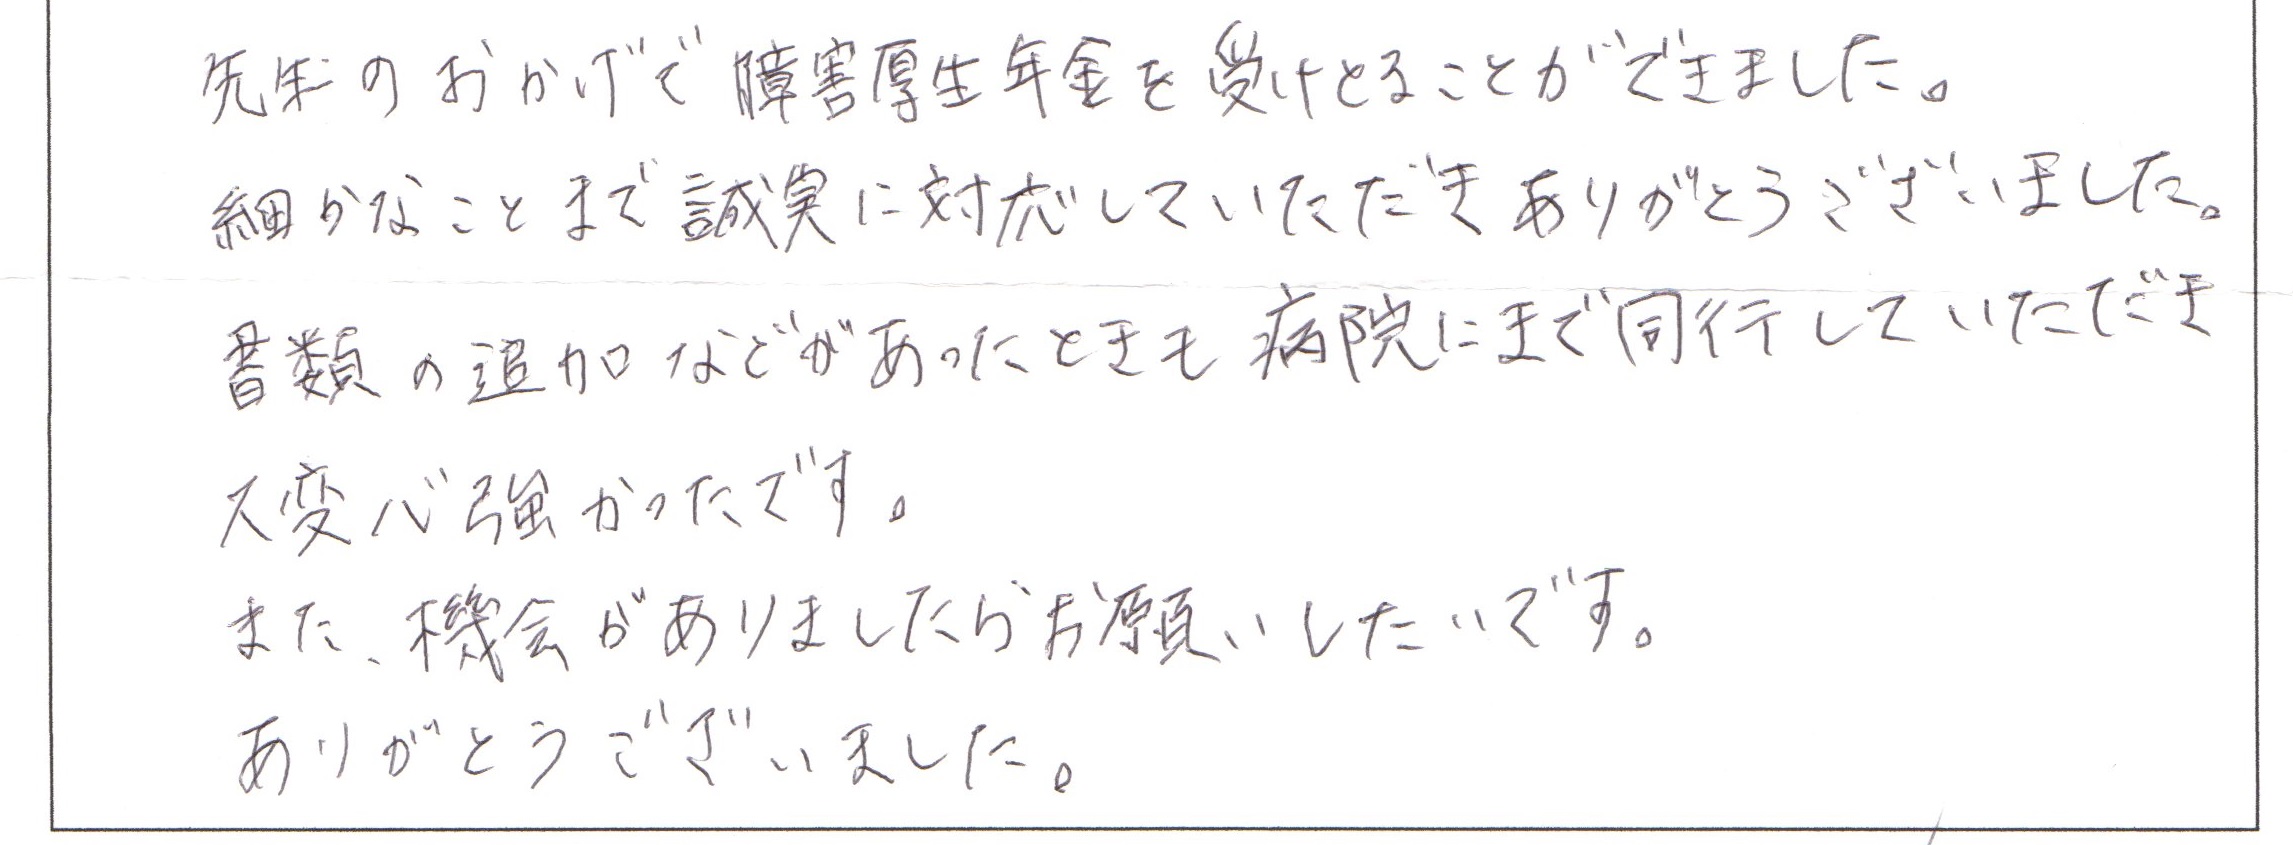 先生のおかげで障害厚生年金を受けとることができました。
細かなことまで誠実に対応していただきありがとうございました。
書類の追加などがあったときも病院にまで同行していただき
大変心強かったです。
また、機会がありましたらお願いしたいです。
ありがとうございました。